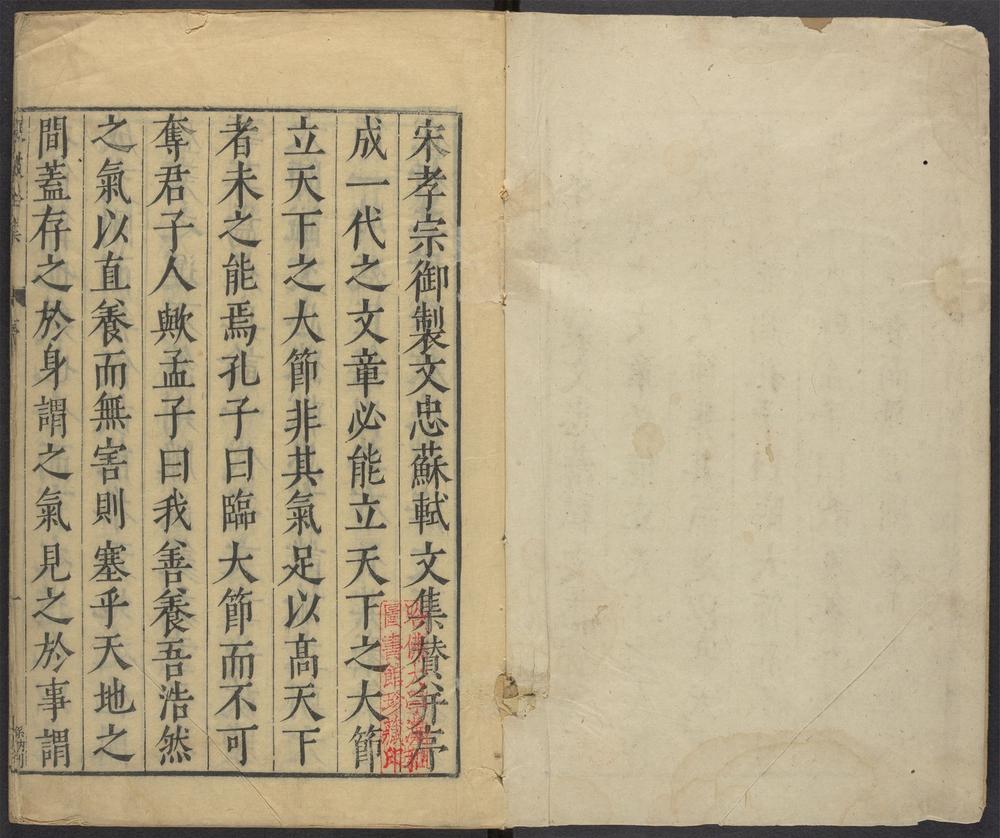 宋孝宗御製文忠蘇軾文集贊并序
成一代之文章必能立天下之大節
立天下之大節非其氣足以高天下
者未之能焉孔子曰臨大節而不可
奪君子人歟孟子曰我善養吾浩然
之氣以直養而無害則塞乎天地之
間蓋存之於身謂之氣見之於事謂
哈佛大學漢和
圖書館珍藏印